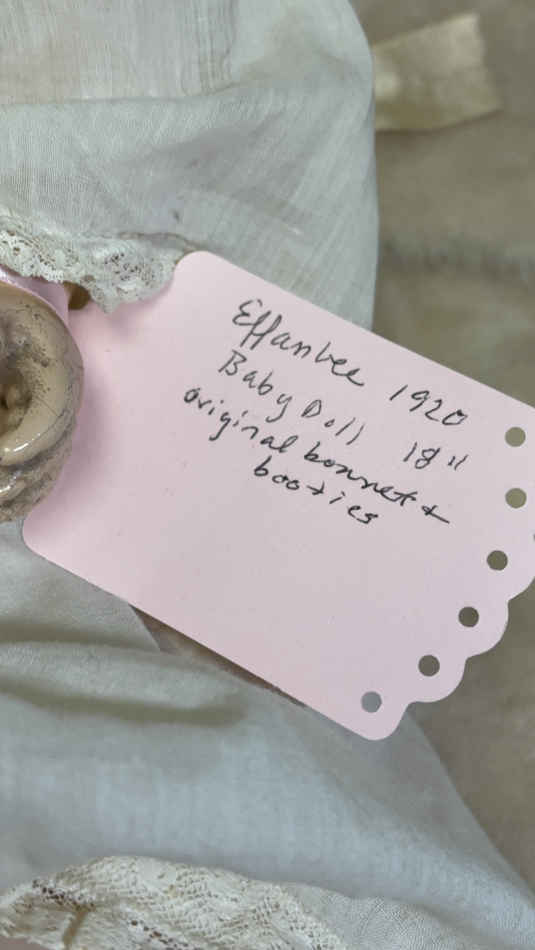 Effanbee 1920
Baby Doll 18"
original bonnet +
booties